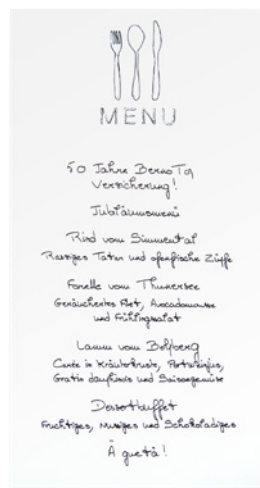 MENU
50 Jahre BernoTa
Versicherung!
Jubiläumsmenü
Rind vom Simmental
Rassiges Tatar und ofenfrische Züpfe
Forelle vom Thunersee
Geräuchertes Filet, Avocadomousse
und Frühlingssalat
Lamm vom Belpberg
Carée in Kräuterkruste, Portweinjus,
Gratin dauphinois und Saisongemüse
Dessertbuffet
Fruchtiges, Mussiges und Schokoladiges
Ä guetä!